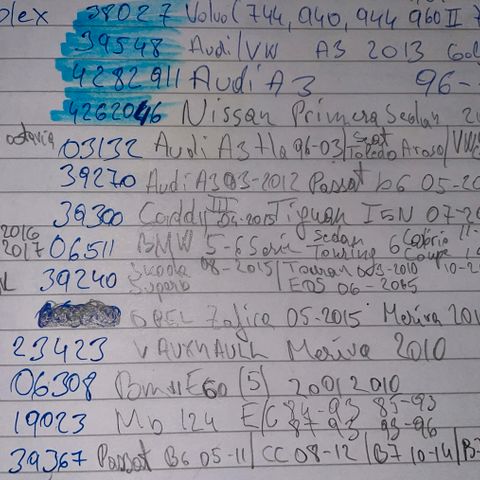 olex 38027 Volvo (744, 940, 944 960 II 7
39548 Audi/VW A3 2013 Gol
4282911 Audi A3 96-
4262046 Nissan Primera Sedan 2
octavia 03132 Audi A3 Hla 96-03 / Seat Toledo Arosa / VW
39270 Audi A3 03-2012 Passat b6 05-20
39300 Caddy III 04-2015 Tiguan I 5N 07-20
2016 2017 06511 BMW 5-6 Serie Sedan Touring 6 Cabrio Coupe 11-
39240 Skoda Superb 08-2015 / Touran 003-2010 EOS 06-2015 10-2
OPEL Zafira 05-2015 Meriva 201
23423 VAUXHALL Meriva 2010
06308 Bmw E60 (5) 2001 2010
19023 Mb 124 E/C 84-93 85-93 87 93 93-96
39367 Passat B6 05-11 / CC 08-12 / B7 10-14 / B